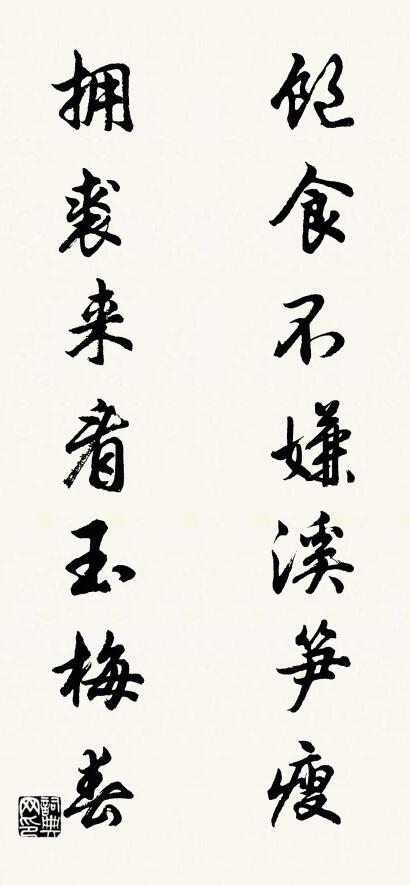 飽食不嫌溪笋瘦
拥裘来看玉梅春
詞典网印